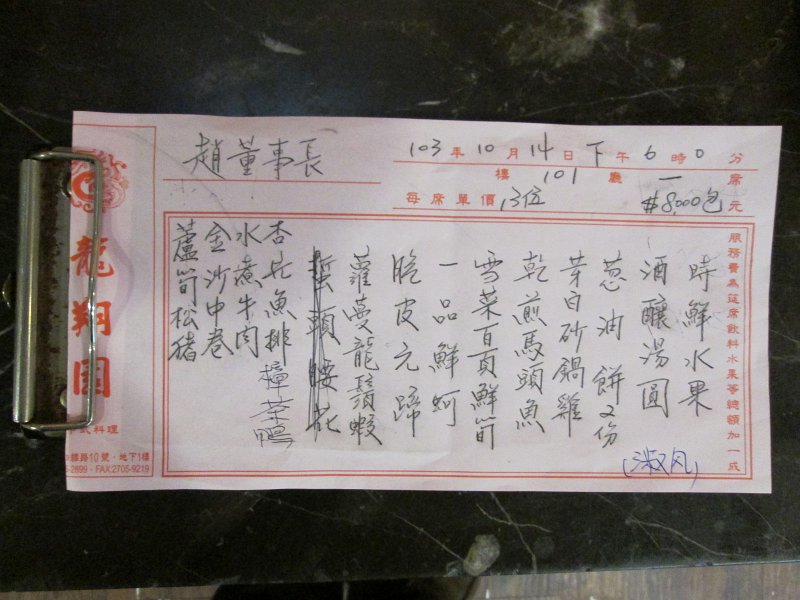 趙董事長
103年10月14日下午6時0分
樓101廳一席
每席單價13位#8,000包元
龍翔園
式料理
路10號・地下1樓
-2899・FAX:2705-9219
蘆筍松豬
金沙中卷
水煮牛肉
杏片魚排
樟茶鴨
蜇頭腰花
蘿蔓龍鬚蝦
脆皮元蹄
一品鮮蚵
雪菜百頁鮮筍
乾煎馬頭魚
芽白砂鍋雞
蔥油餅2份
酒釀湯圓
時鮮水果
(淑风)
服務費為筵席飲料水果等總額加一成